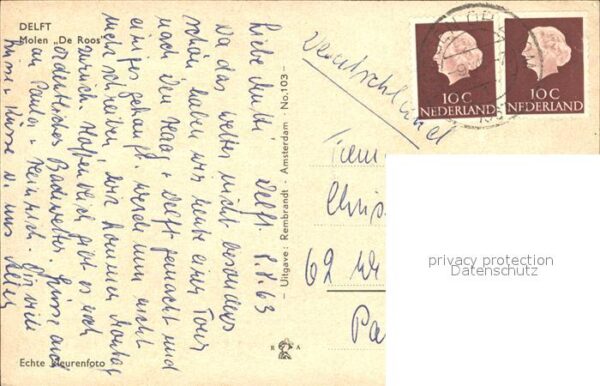 DELFT
Molen „De Roos"
Liebe Mutti! Delft, 8.8.63
Da das Wetter nicht besonders
schön, haben wir heute eine Tour
nach Den Haag + Delft gemacht und
einiges gekauft. Werde nun nicht
mehr schreiben, wir kommen Montag
zurück. Hoffentlich gibt es noch
ordentliches Badewetter. Grüsse auch
an Paula + Heinrich. Für viele
Grüsse + Küsse v. uns allen
Echte kleurenfoto
Uitgave: Rembrandt - Amsterdam - No. 103 -
R A
Deutschland
10 C
NEDERLAND
10 C
NEDERLAND
Frau
Chris
62 Wi
Pa
privacy protection
Datenschutz